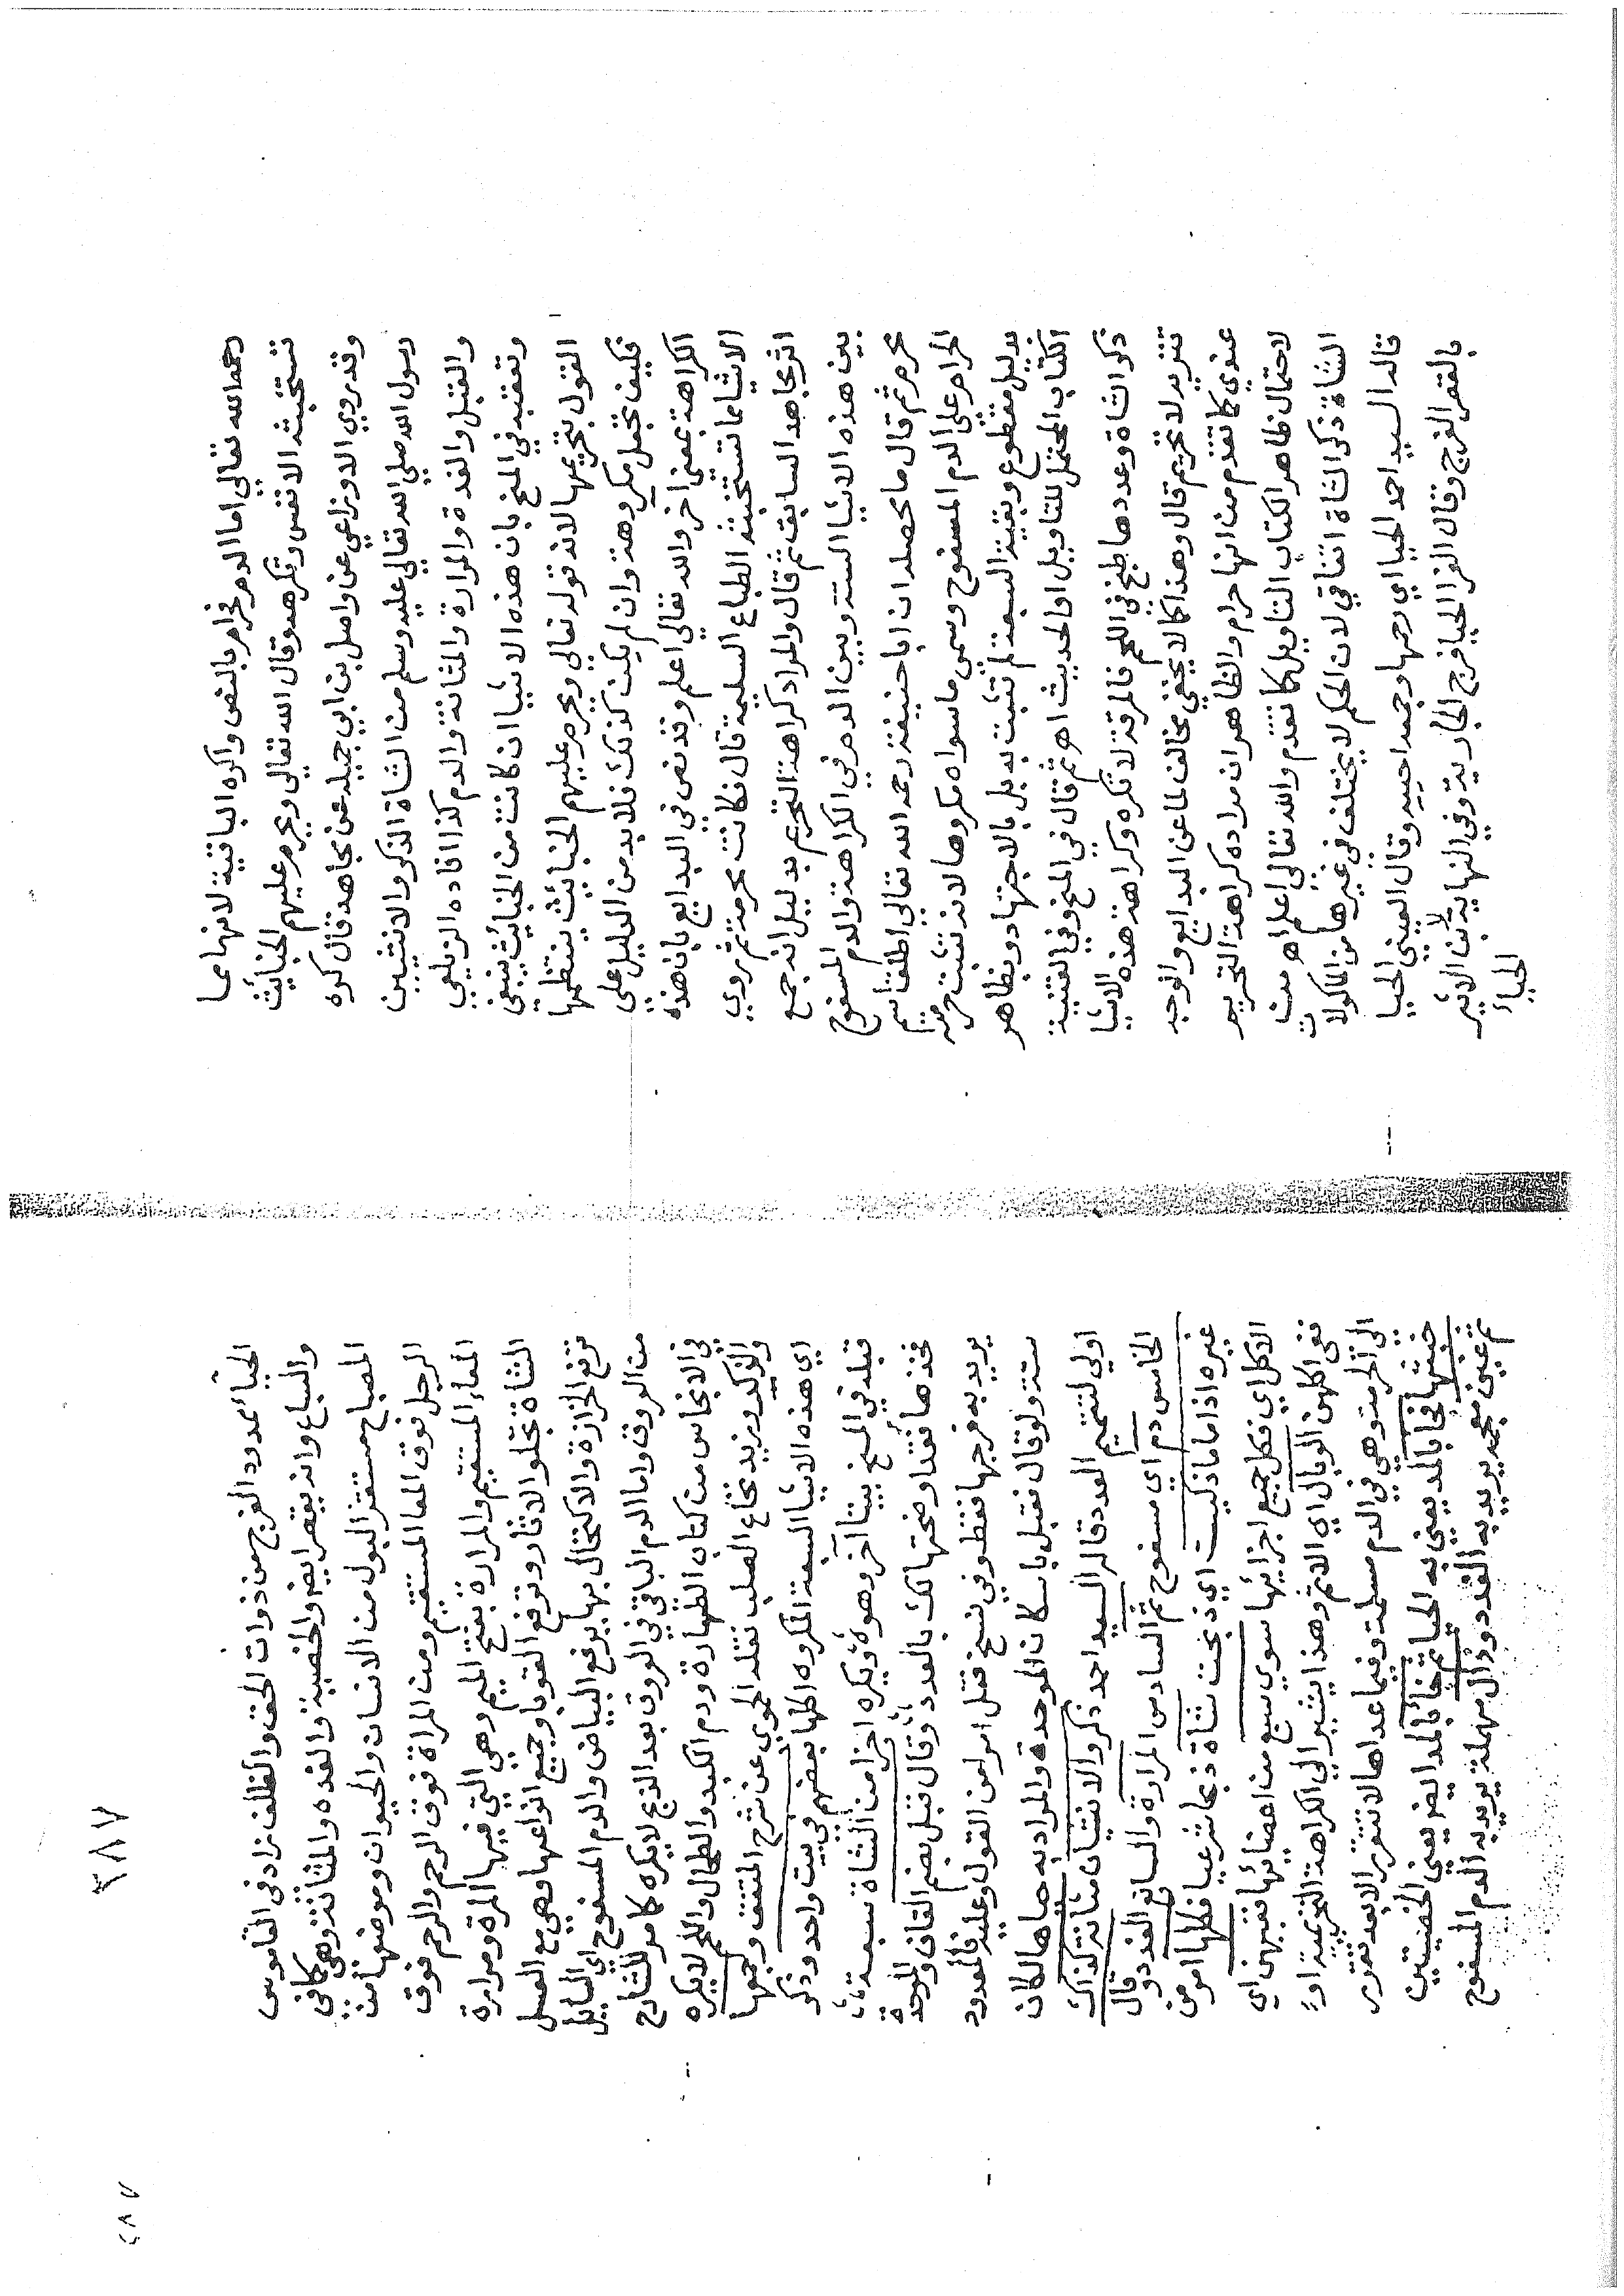 رحمه الله تعالى اما الدم فحرام بالنص واكره الباقية لانها مما
تستخبثه الانفس وتكرهه وقال الله تعالى ويحرم عليهم الخبايث
وقد روي الاوزاعي عن واصل بن ابي جميلة عن مجاهد قال كره
رسول الله صلي الله تعالي عليه وسلم من الشاة الذكر والانثيين
والقبل والغدة والمرارة والمثانة والدم كذا افاده الزيلعي
وتعقبه في المنح بان هذه الاشيا ان كانت من الخبايث ينبغي
القول بتحريمها لان قوله تعالي ويحرم عليهم الخبايث ينتظمها
فكيف تجعل مكروهة وان لم يكن كذلك فلابد من الدليل علي
الكراهة بمعني اخر والله تعالي اعلم وقد نص في البدايع بان هذه
الاشيا مما تستخبثه الطباع السليمة قال فكانت محرمة ثم روي
اثر مجاهد السابق ثم قال والمراد كراهة التحريم بدليل انه جمع
بين هذه الاشيا الستة وبين الدم في الكراهة والدم المسفوح
محرم ثم قال ما محصله ان ابا حنيفة رحمه الله تعالي اطلق اسم
الحرام علي الدم المسفوح وسمي ما سواه مكروها لانه تثبت حرمته
بدليل مقطوع وبقية السبعة لم تثبت به بل بالاجتهاد وبظاهر
الكتاب المحتمل للتاويل او الحديث اهـ ثم قال في المنح وفي القنية
ذكر الشاة وغددها طبخ في اللحم فالمرقة لا تكره وكراهة هذه الاشيا
تنزيه لا تحريم قال وهذا كما لا يخفي مخالف لما عن البدايع والوجه
عندي كما تقدم من انها حرام والظاهر ان مراده كراهة التحريم
لاحتمال ظاهر الكتاب التاويل كما تقدم والله تعالي اعلم اهـ من
الشاة ذكر الشاة اتفاقي لان الحكم لا يختلف في غيرها من الماكولات
قاله السيد احمد الحيا اي رحمها وجمعه احيية وقال العيني الحيا
بالقصر الفرج وقال الفرا الحيا فرج الجارية وفي النهاية لابن الاثير
الحياء
٣٨٧
الحيآ ممدود الفرج من ذوات الخف والظلف زاد في القاموس
والسباع وانه يقصر ايضا والخصية والغده والمثانة وهي كما في
المصباح مستقر البول من الانسان والحيوان وموضعها من
الرجل فوق المعا المستقيم ومن المراة فوق الرحم والرحم فوق
المعاء المستقيم والمرارة بفتح الميم وهي التي فيها المرة ومرارة
الشاة تجلو الاثار وترفع القوبا وجميع انواعها وهي مع العسل
ترفع الحزازة والاكتحال بها يرفع البياض والدم المسفوح اي السايل
من العروق واما الدم الباقي في العروق بعد الذبح لا يكره كما مر للشارح
في الانجاس من كتاب الطهارة ودم الكبد والطحال واللحم لا يكره
والذكر وزيد نخاع الصلب نقله الحموي عن شرح الملتقى وجمعها
اي هذه الاشيا السبعة المكروه اكلها بعضهم في بيت واحد وذكر
قبله في المنح بيتا آخر وهو ويكره اجزا من الشاة سبعة
فخذها فقد اوضحتها لك بالعدد وقال قبل بضم القاف والموحدة
يريد به فرجها فقط وفي نسخ فقل امر من القول وعليه فالمعدود
ستة ولو قال فقبل باسكان الموحدة والمراد به حياها لكان
اولي لتتميم العدد قاله السيد احمد ذكر والانثيان مثانة كذاك
الخامس دم اي مسفوح ثم السادس المرارة والسابع الغدد وقال
غيره اذا ما ذكيت اي ذبحت شاة ذبحا شرعيا فكلها امر من
الاكل اي فكل جميع اجزائها سوي سبع من اعضائها ففيهن اي
ففي اكلهن الوبال اي الاثم وهذا يشير الي الكراهة التحريمية او
الى الحرمة وهي في الدم مسلمة وفيما عداها لا تتقرر الا بعد تقرر
خبثها فحا بالمد يعني به الحيا ثم خا بالمد ايضا يعني الخصيتين
ثم غين معجمة يريد به الغدد ودال مهملة يريد به الدم المسفوح